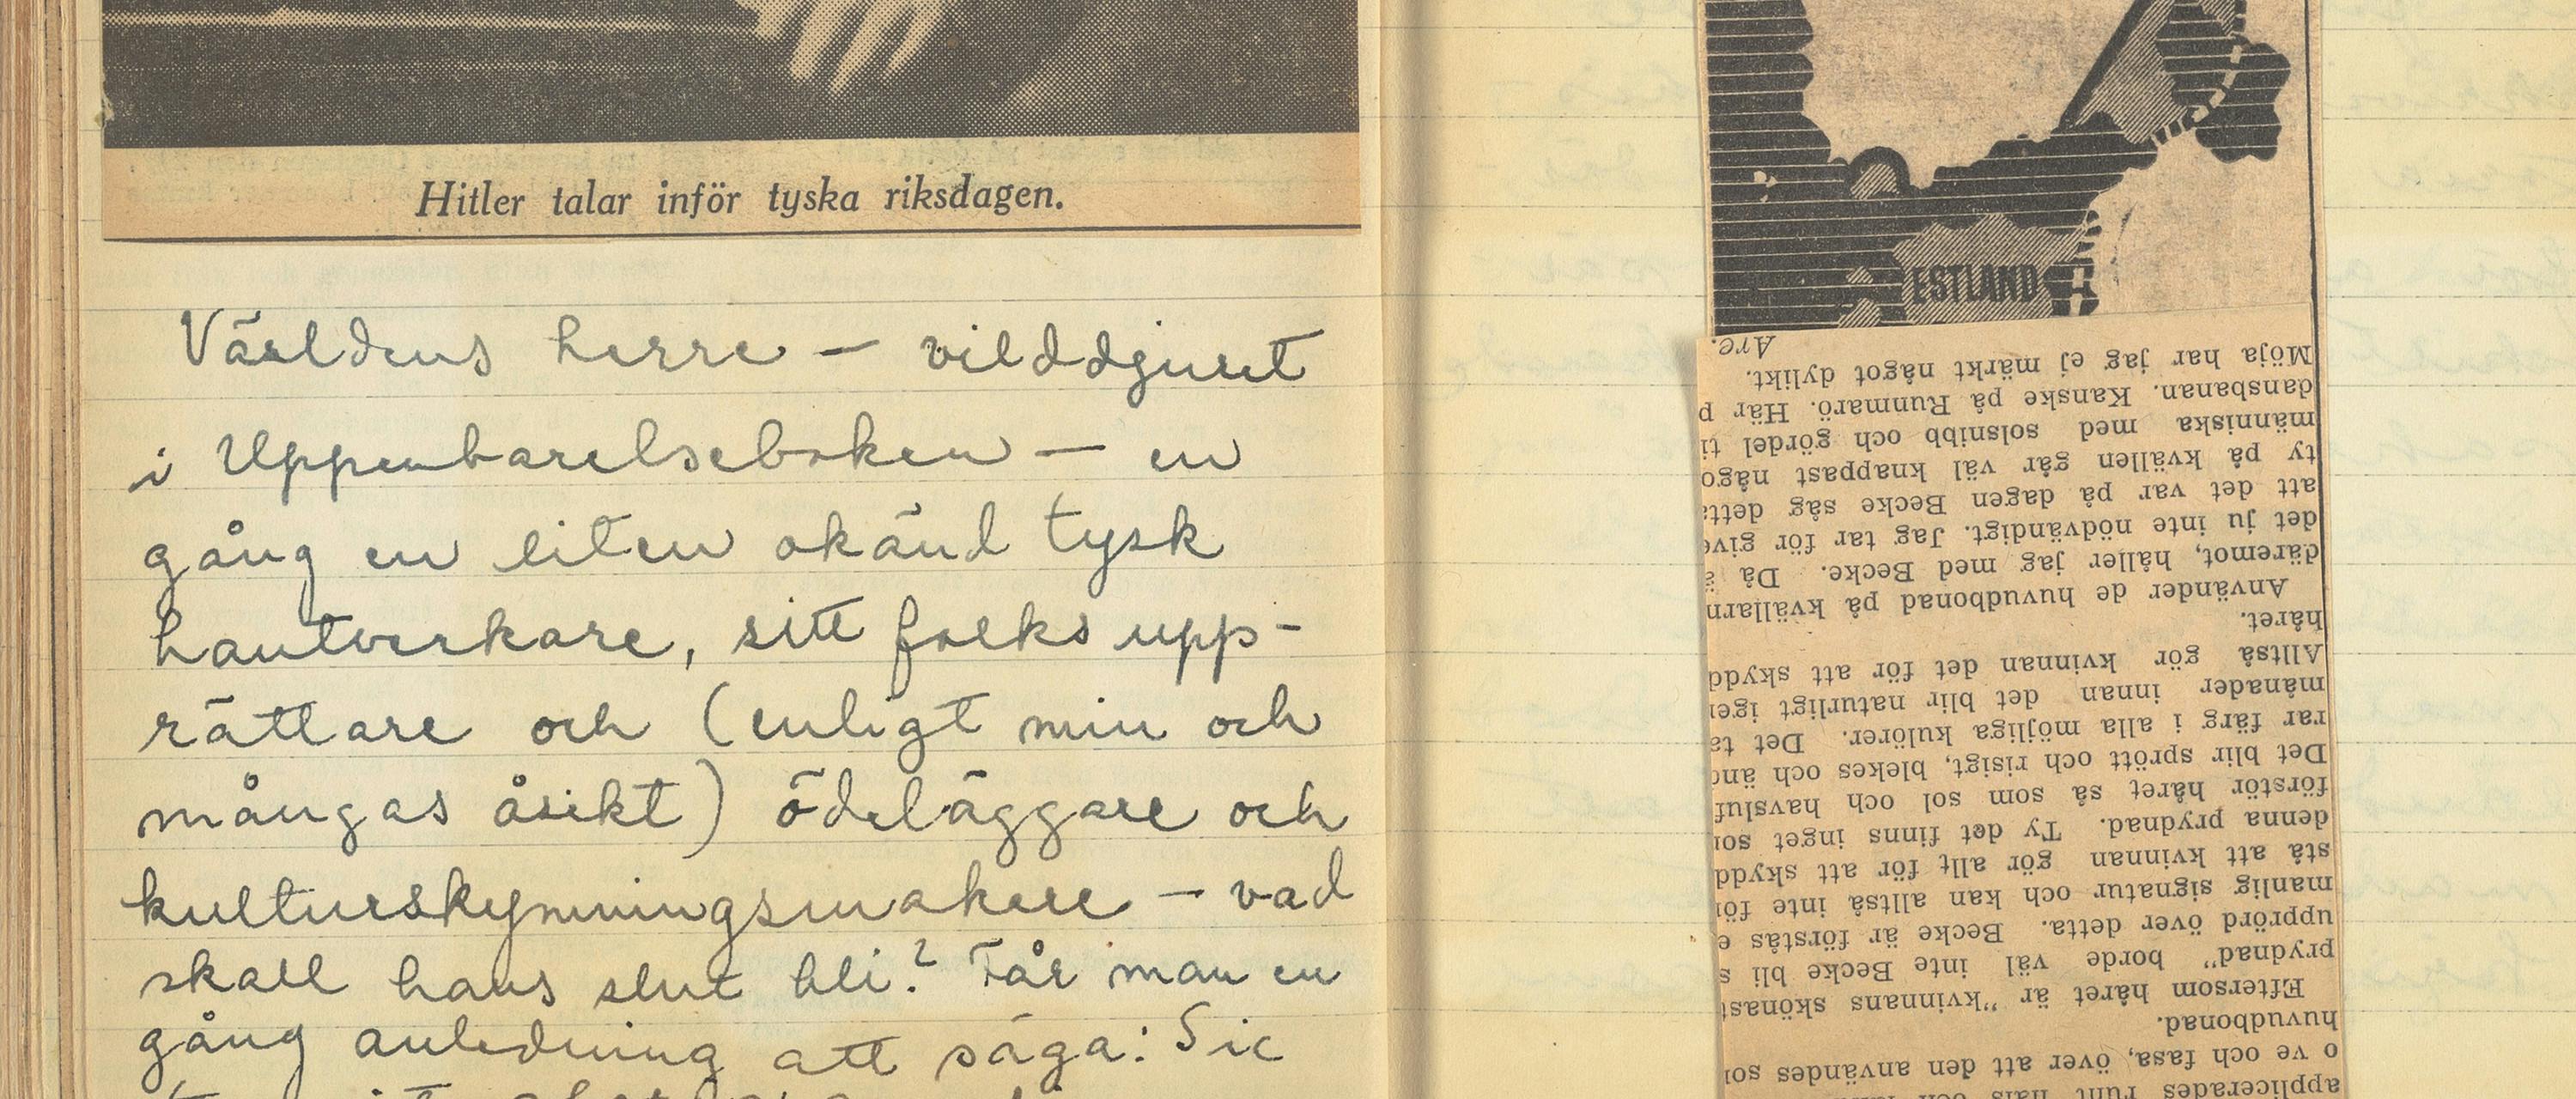 Hitler talar inför tyska riksdagen.
Världens herre — vilddjuret
i Uppenbarelseboken — en
gång en liten okänd tysk
hantverkare, sitt folks upp-
rättare och (enligt min och
mångas åsikt) ödeläggare och
kulturskymningsmakare — vad
skall hans slut bli? Får man en
gång anledning att säga: Sic
ESTLAND
applicerades runt hals och
o ve och fasa, över att den användes so
huvudbonad.
Eftersom håret är ”kvinnans skönast
prydnad” borde väl inte Becke bli s
upprörd över detta. Becke är förstås e
manlig signatur och kan alltså inte för
stå att kvinnan gör allt för att skydd
denna prydnad. Ty det finns inget so
förstör håret så som sol och havsluf
Det blir sprött och risigt, blekes och änd
rar färg i alla möjliga kulörer. Det ta
månader innan det blir naturligt ige
Alltså gör kvinnan det för att skydd
håret.
Använder de huvudbonad på kvällarn
däremot, håller jag med Becke. Då ä
det ju inte nödvändigt. Jag tar för give
att det var på dagen Becke såg detta
ty på kvällen går väl knappast någo
människa med solsnibb och gördel ti
dansbanan. Kanske på Runmarö. Här p
Möja har jag ej märkt något dylikt.
Are.